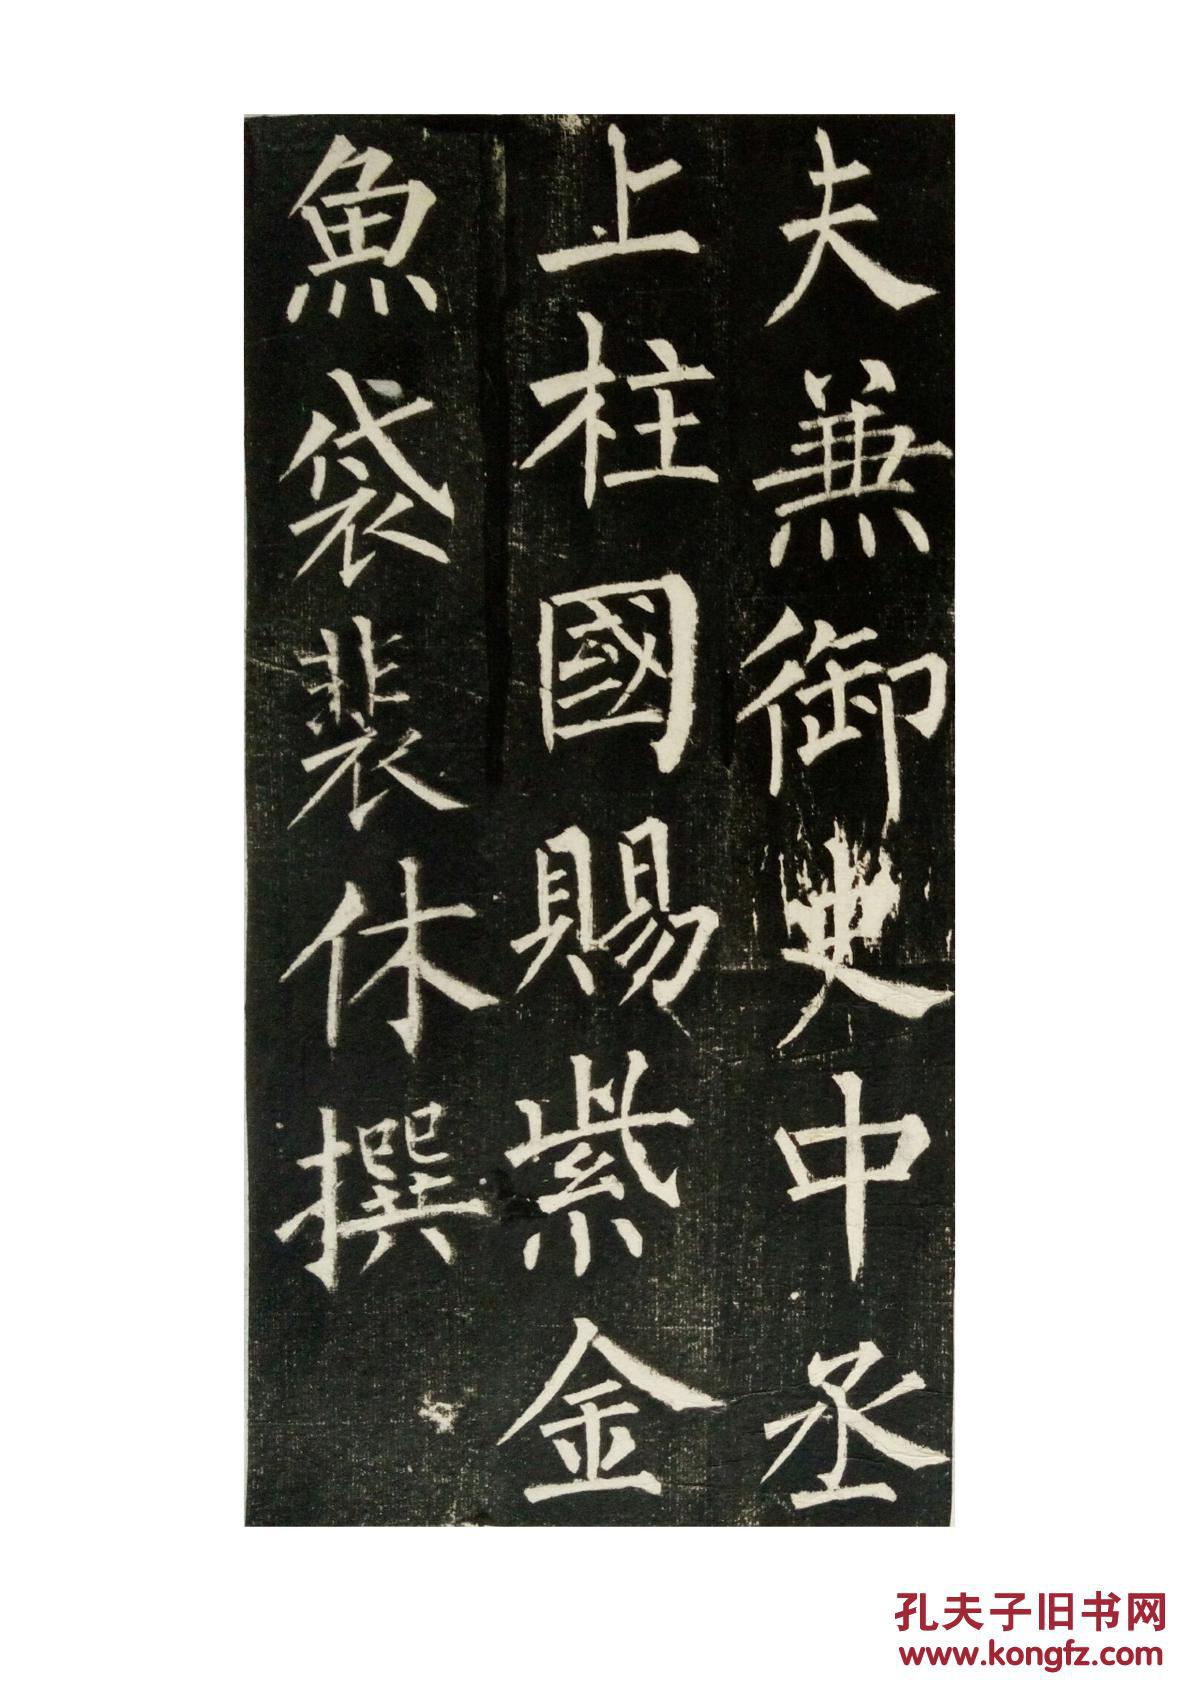 夫兼御史中丞
上柱國賜紫金
魚袋裴休撰
孔夫子旧书网
www.kongfz.com